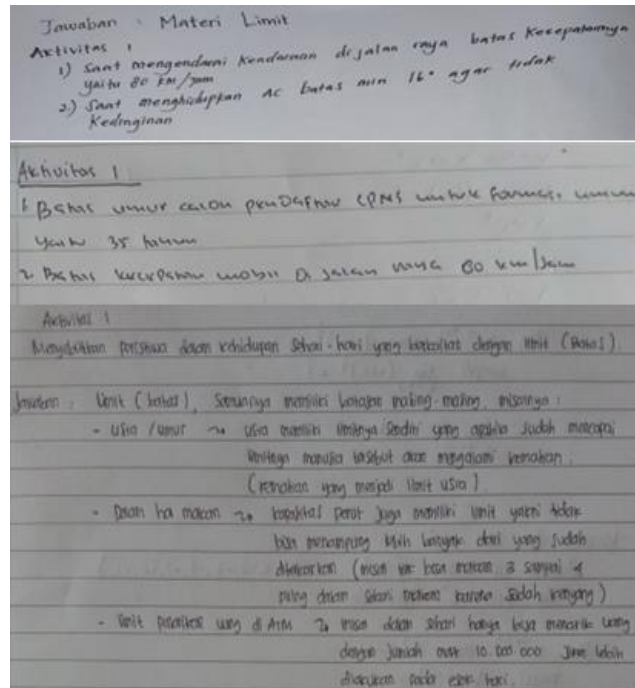 Jawaban : Materi Limit
Aktivitas 1
1) Saat mengendarai Kendaraan di jalan raya batas Kecepatannya
yaitu 80 km/jam
2.) Saat menghidupkan AC batas min 16° agar tidak
Kedinginan
Aktivitas 1
1 Batas umur calon pendaftar CPNS untuk formasi umum
yaitu 35 tahun
2 Batas kecepatan mobil di jalan raya 80 km/jam
Aktivitas 1
Menyebutkan peristiwa dalam kehidupan sehari-hari yang berkaitan dengan limit (Batas)
Jawaban : Limit (batas), Semuanya memiliki batasan masing-masing, misalnya :
- Usia / umur → usia memiliki limitnya sendiri yang apabila sudah mencapai
limitnya manusia tersebut akan mengalami kematian.
(kematian yang menjadi limit usia)
- Dalam hal makan → kapasitas perut juga memiliki limit yakni tidak
bisa menampung lebih banyak dari yang sudah
(misal bisa makan 3 sampai 4
piring dalam sehari karena sudah kenyang)
- limit penarikan uang di ATM → misal dalam sehari hanya bisa menarik uang
dengan jumlah 10.000.000 lebih
dilakukan pada esok hari.